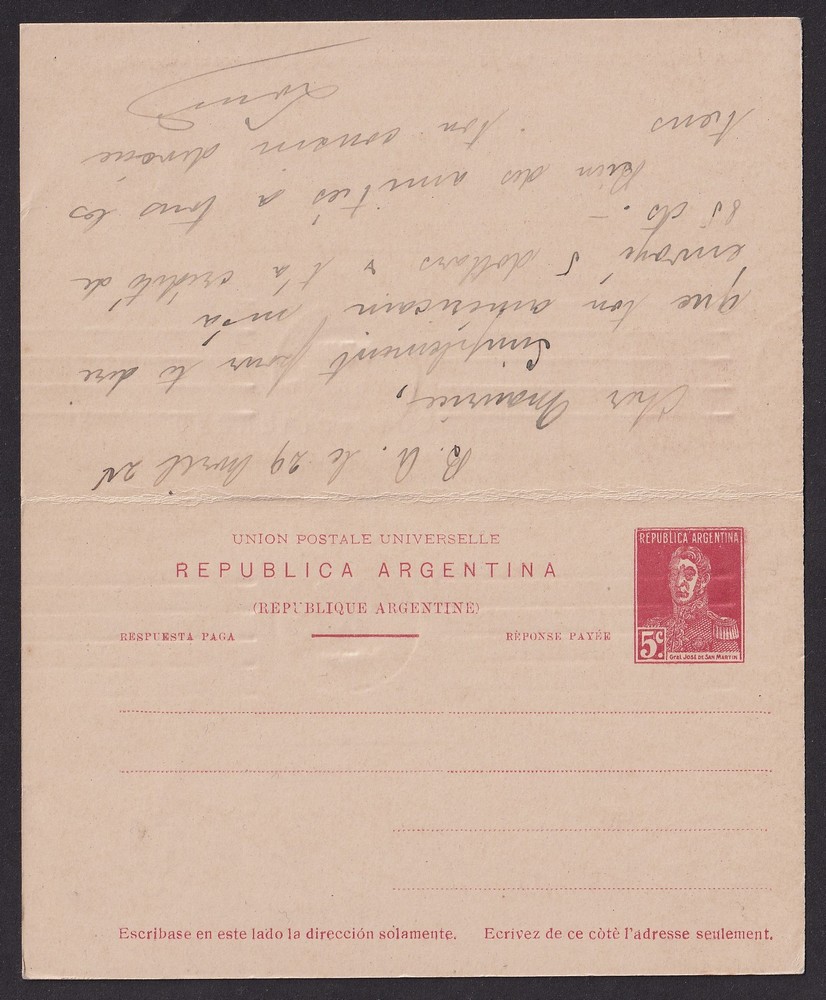 B. A. le 29 Avril
Cher Maurice,
Simplement pour te dire
que ton américain m'a
envoyé 5 dollars & t'a crédité de
85 cts.-
Bien des amitiés à tous les
tiens . ton cousin dévoué
Louis
UNION POSTALE UNIVERSELLE
REPUBLICA ARGENTINA
(REPUBLIQUE ARGENTINE)
RESPUESTA PAGA RÉPONSE PAYÉE
REPUBLICA ARGENTINA
5c.
Gral. José de San Martin
Escribase en este lado la dirección solamente. Ecrivez de ce côtè l'adresse seulement.